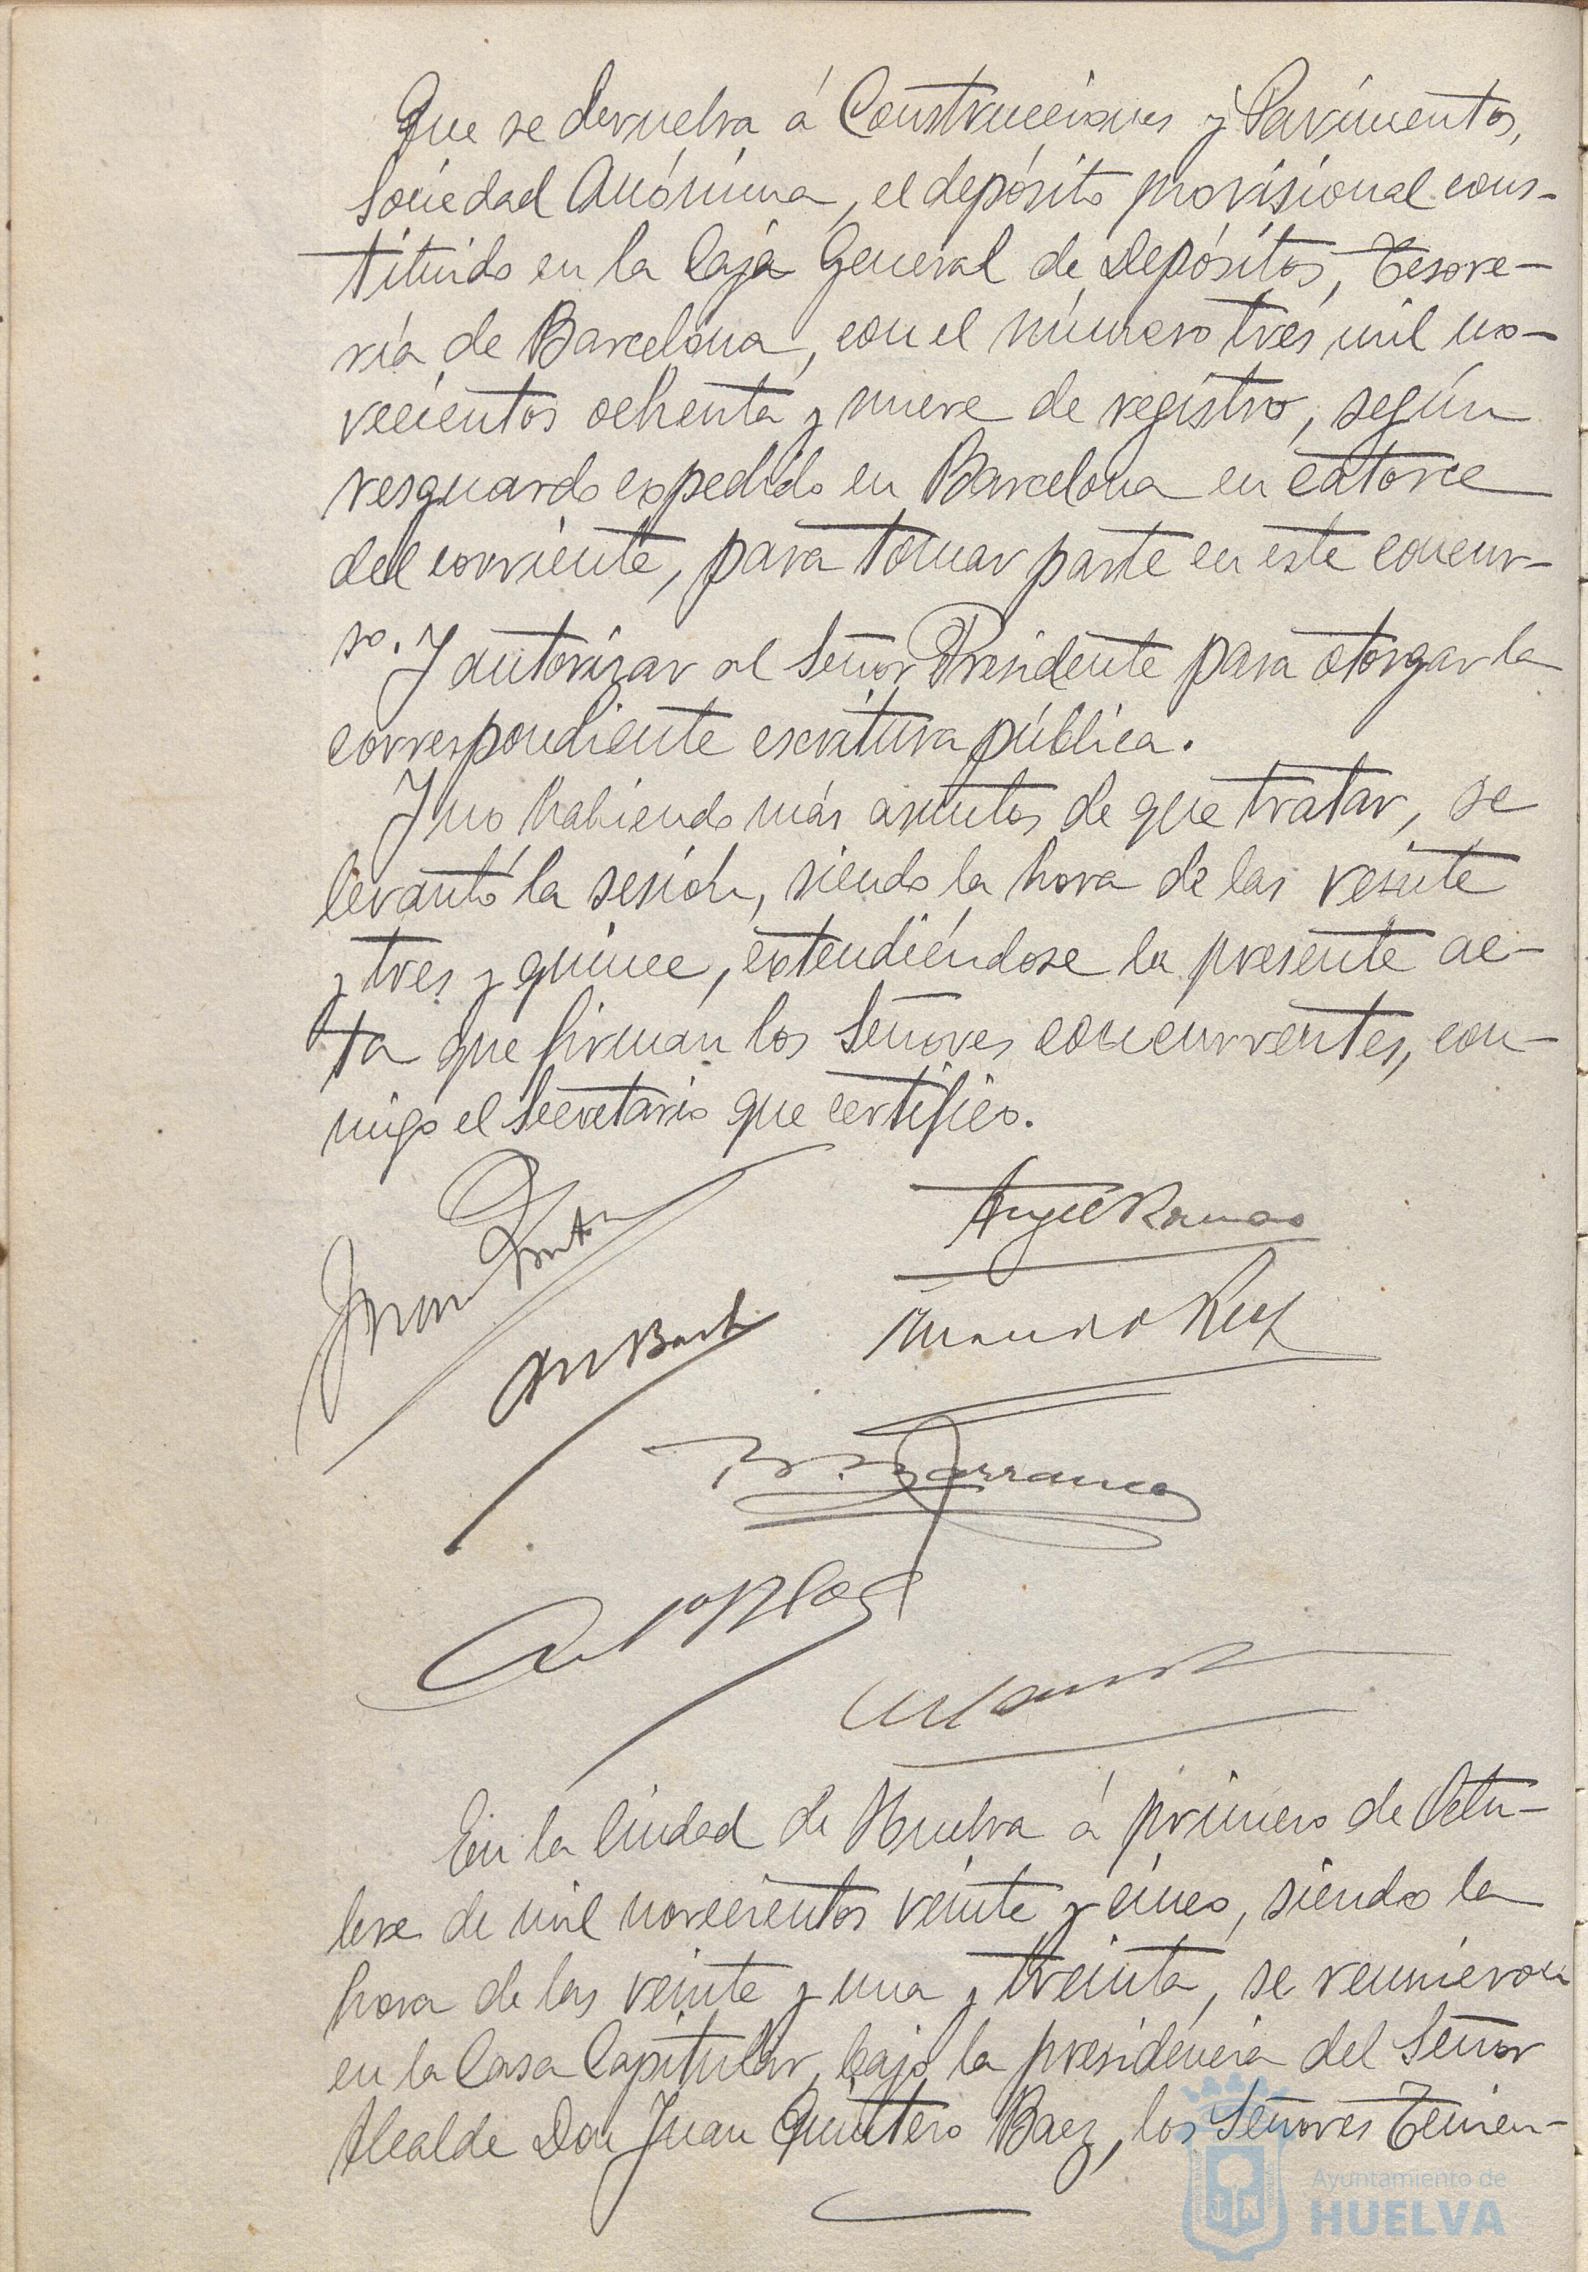 Que se devuelva á Construcciones y Pavimentos,
Sociedad Anónima, el depósito provisional cons-
tituido en la Caja General de Depósitos, Tesore-
ría de Barcelona, con el número tres mil no-
vecientos ochenta y nueve de registro, según
resguardo expedido en Barcelona en catorce
del corriente, para tomar parte en este concur-
so. Y autorizar al Señor Presidente para otorgar la
correspondiente escritura pública.
Y no habiendo más asuntos de que tratar, se
levantó la sesión, siendo la hora de las veinte
y tres y quince, extendiéndose la presente ac-
ta que firman los Señores concurrentes, con-
migo el Secretario que certifico.
Juan Quintero
Angel Romao
Ruiz
Barranco
En la Ciudad de Huelva á primero de Octu-
bre de mil novecientos veinte y cinco, siendo la
hora de las veinte y una y treinta, se reunieron
en la Casa Capitular, bajo la presidencia del Señor
Alcalde Don Juan Quintero Baez, los Señores Tenien-
Ayuntamiento de
HUELVA